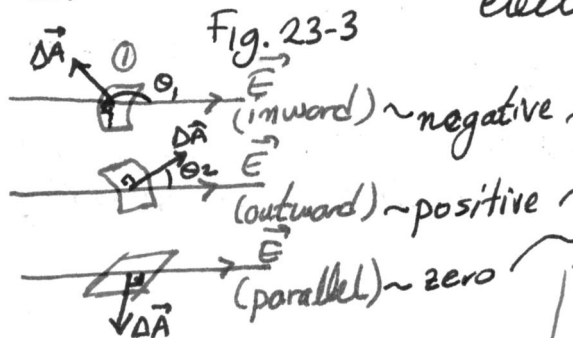 Fig. 23-3
ΔA⃗ ① θ₁ E⃗
(inward) ~ negative
ΔA⃗ θ₂ E⃗
(outward) ~ positive
E⃗
(parallel) ~ zero
ΔA⃗